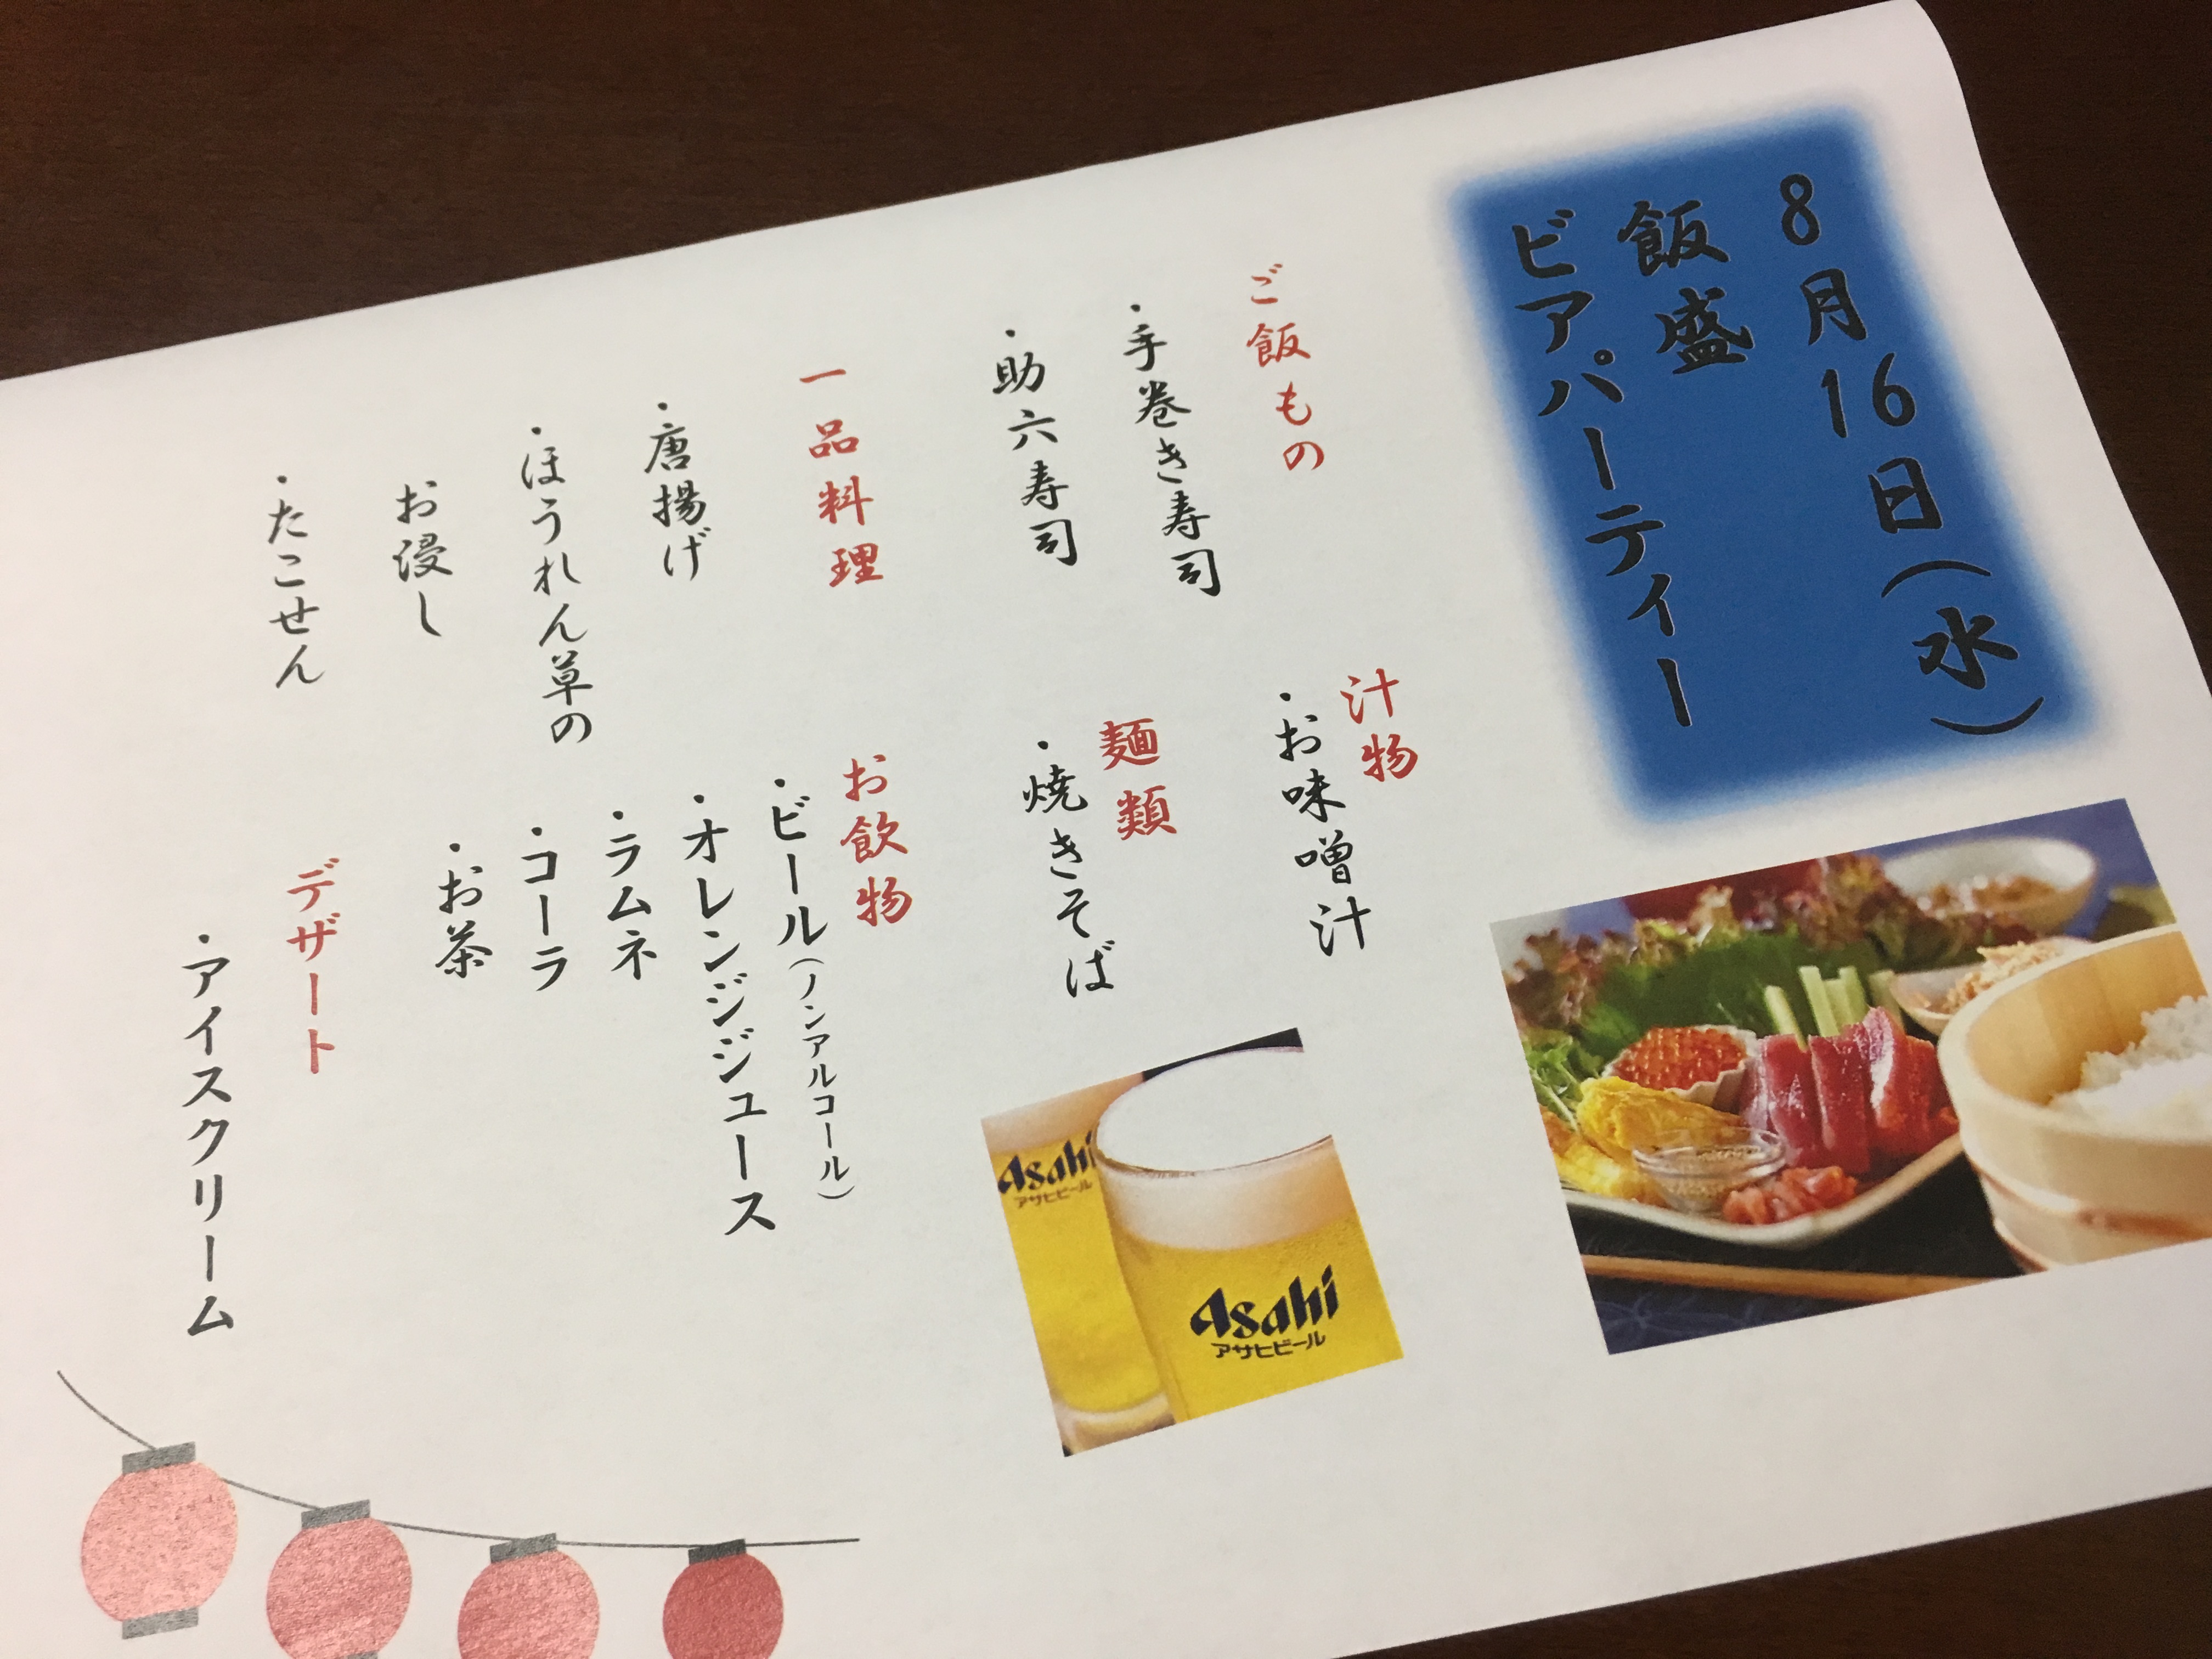 8月16日(水)
飯盛
ビアパーティー
ご飯もの
・手巻き寿司
・助六寿司
一品料理
・唐揚げ
・ほうれん草の
お浸し
・たこせん
汁物
・お味噌汁
麺類
・焼きそば
お飲物
・ビール(ノンアルコール)
・オレンジジュース
・ラムネ
・コーラ
・お茶
デザート
・アイスクリーム
Asahi
アサヒビール
Asahi
アサヒビール